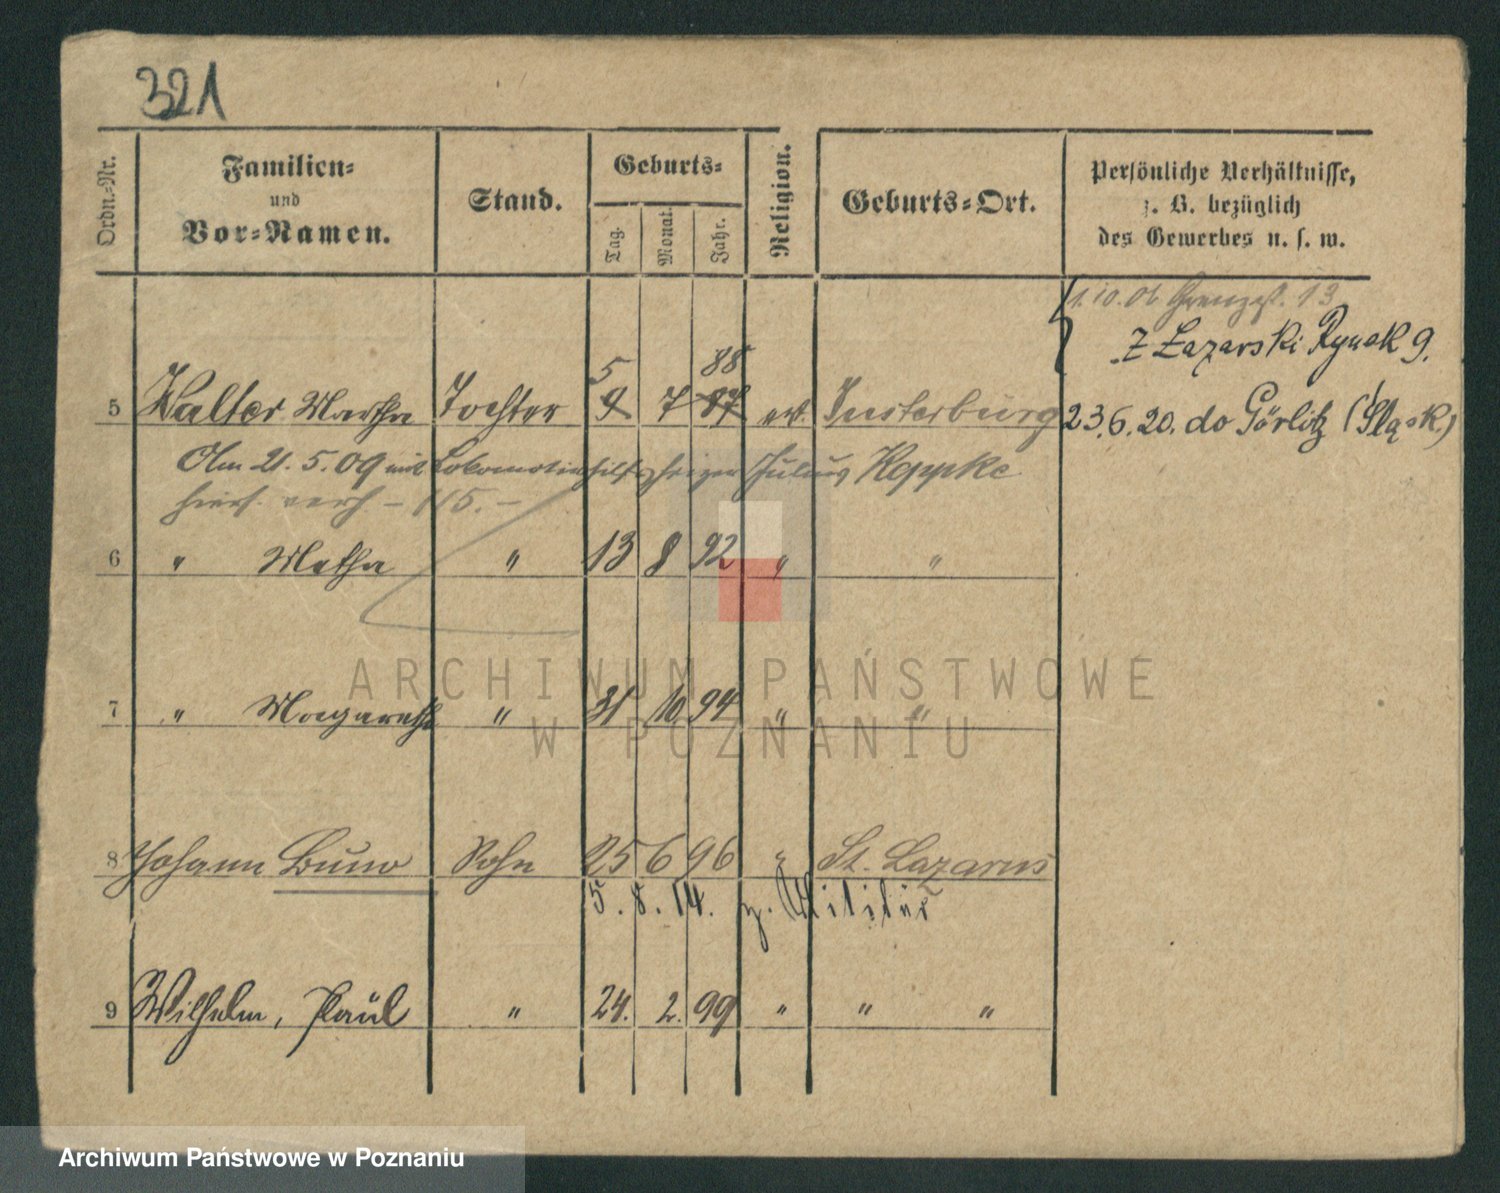 321
Ordn.-Nr.
Familien-
und
Vor-Namen.
Stand.
Geburts-
Tag.
Monat.
Jahr.
Religion.
Geburts-Ort.
Persönliche Verhältnisse,
z. B. bezüglich
des Gewerbes u. s. w.
1.10.01 Grenzst. 13
Z Łazarski Rynek 9.
5 88
5 Walter Martha Tochter 9 7 87 ev. Insterburg 23.6.20. do Görlitz (Śląsk)
Am 21.5.09 mit Lokomotivhilfsheizer Julius Koppke
hiers. verh – 115.–
6 " Metha " 13 8 92 " "
7 " Margarethe " 31 10 94 " "
8 Johann Bruno Sohn 25 6 96 " St. Lazarus
5.8.14. z. Militär
9 Wilhelm, Paul " 24. 2. 99 " " "
ARCHIWUM PAŃSTWOWE
W POZNANIU
Archiwum Państwowe w Poznaniu